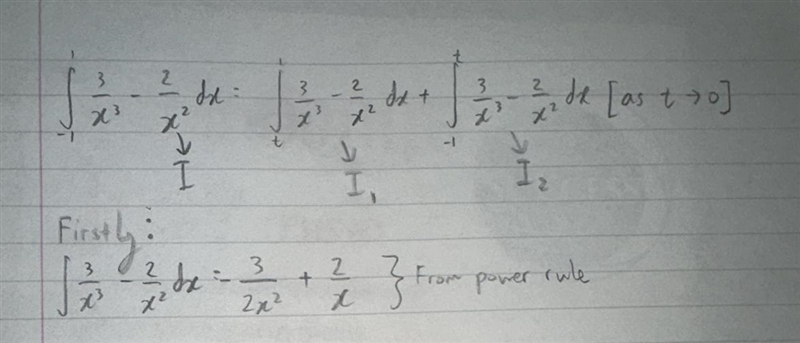 ∫₋₁¹ 3/x³ - 2/x² dx = ∫ₜ¹ 3/x³ - 2/x² dx + ∫₋₁ᵗ 3/x³ - 2/x² dx [as t → 0]
↓ ↓ ↓
I I₁ I₂
Firstly:
∫ 3/x³ - 2/x² dx = - 3/2x² + 2/x } From power rule